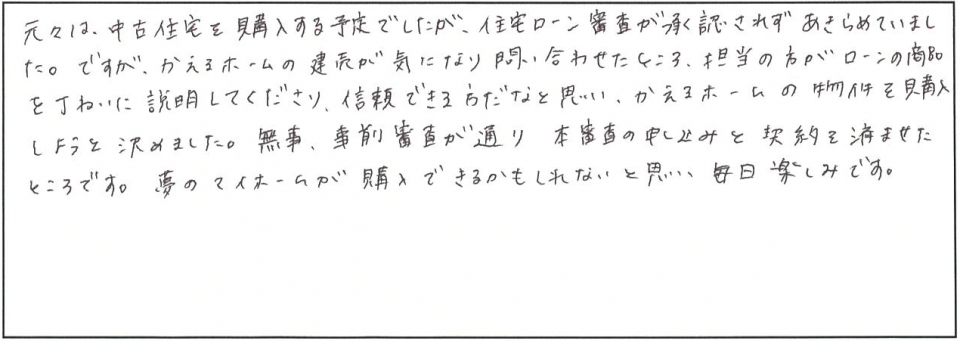 元々は、中古住宅を購入する予定でしたが、住宅ローン審査が承認されずあきらめていまし
た。ですが、かえるホームの建売が気になり問い合わせたところ、担当の方がローンの商品
を丁ねいに説明してくださり、信頼できる方だなと思い、かえるホームの物件を購入
しようと決めました。無事、事前審査が通り本審査の申し込みと契約を済ませた
ところです。夢のマイホームが購入できるかもしれないと思い毎日楽しみです。